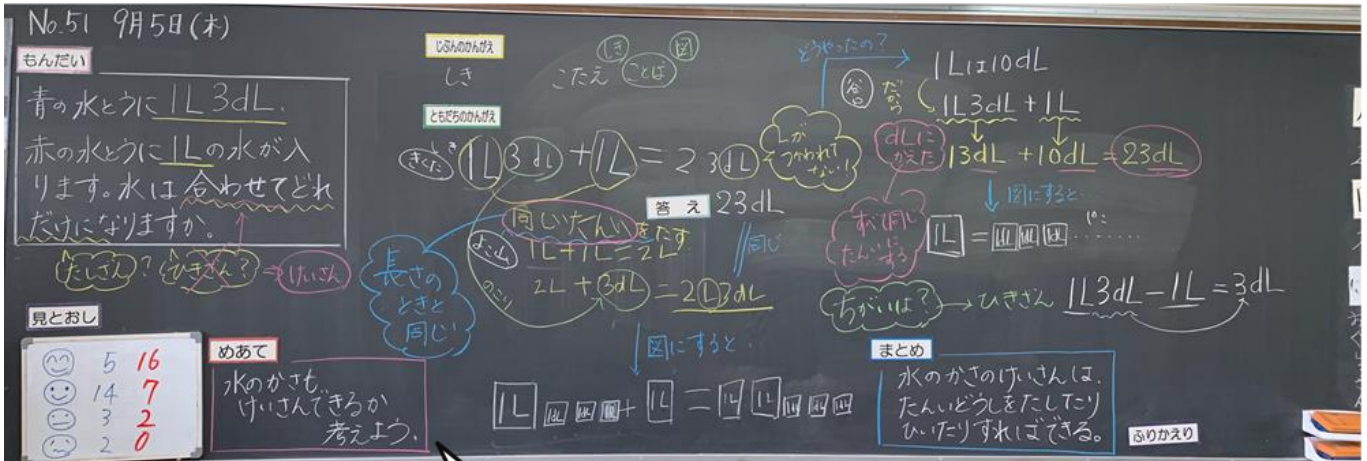 No.51 9月5日(木)
もんだい
青の水とうに1L3dL、
赤の水とうに1Lの水が入
ります。水は合わせてどれ
だけになりますか。
たしざん? ひきざん? ⇒ けいさん
見とおし
5 16
14 7
3 2
2 0
めあて
水のかさも、
けいさんできるか
考えよう。
じぶんのかんがえ
しき こたえ ことば
しき 図
ともだちのかんがえ
きくた しき 1L3dL+1L=23dL
答え 23dL
同じたんいをたす
よこ山 1L+1L=2L
のこり 2L+3dL=2L3dL
同じ
長さの
ときと
同じ
図にすると…
1L 1dL 1dL 1dL + 1L = 1L 1L 1dL 1dL 1dL
Lが
つかわれて
ない!
どうやったの?
谷口 だから
1Lは10dL
1L3dL+1L
13dL+10dL=23dL
dLに
かえた
すべて同じ
たんいに
する
図にすると…
1L = 1dL 1dL 1dL ……
ちがいは? → ひきざん 1L3dL-1L=3dL
まとめ
水のかさのけいさんは、
たんいどうしをたしたり
ひいたりすればできる。
ふりかえり